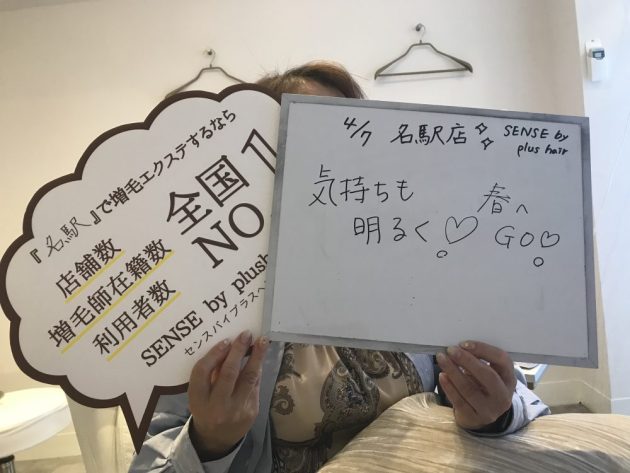 『名駅』で増毛エクステするなら
店舗数
増毛師在籍数
利用者数
全国
NO 1
SENSE by plush
センスバイプラスヘ
4/7 名駅店 SENSE by
plus hair
気持ちも
明るく♡!
春へ
GO♡!